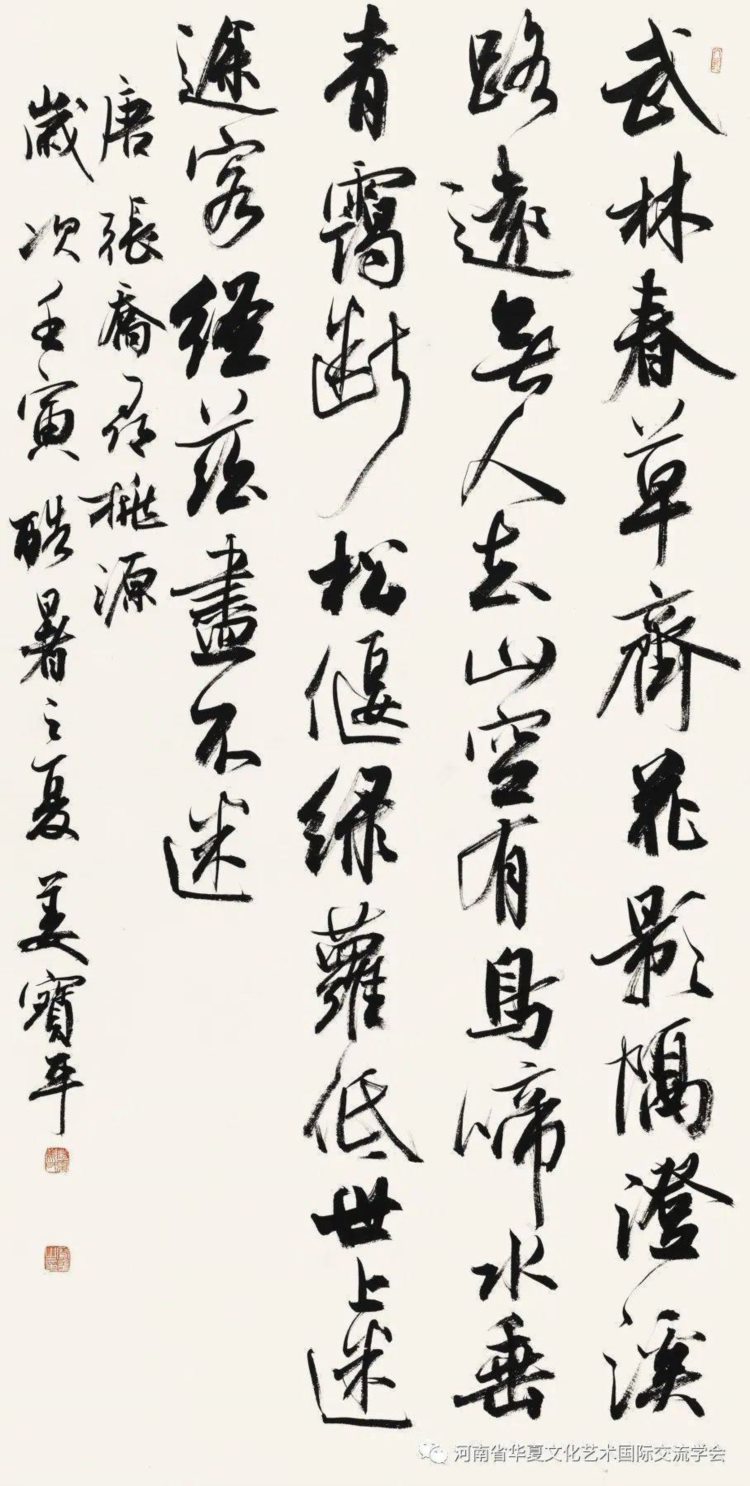 武林春草齊花影隔澄溪
路遠無人去山空有鳥啼水垂
青靄斷松偃綠蘿低世上迷
途客經茲盡不迷
唐張喬尋桃源
歲次壬寅酷暑之夏姜寶平
河南省华夏文化艺术国际交流学会